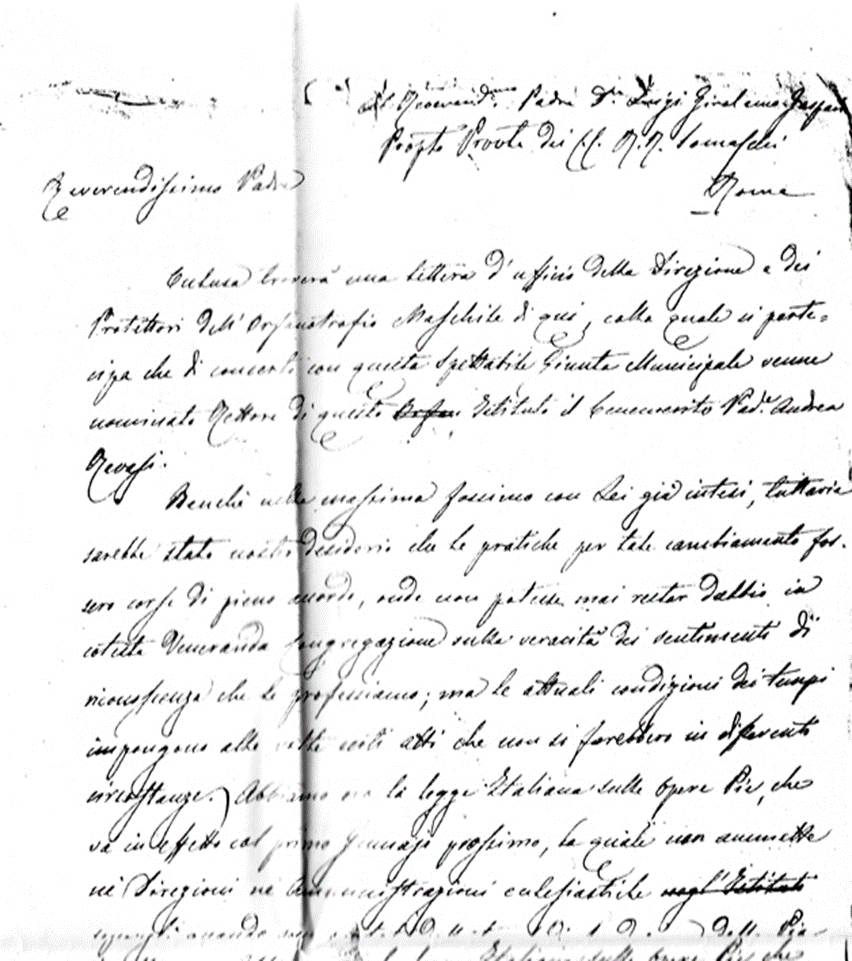 Al Reverend.mo Padre D.n Luigi Girolamo Gaspari
Prepto Provle dei C.C. R.R. Somaschi
Roma
Reverendissimo Padre
Inclusa troverà una lettera d'ufficio della Direzione e dei
Protettori dell'Orfanotrofio Maschile di qui, colla quale si parte=
cipa che di concerto con questa Spettabile Giunta Municipale venne
nominato Rettore di questo Orfan. Istituto il benemerito Pad.e Andrea
Ravasi.
Benchè nella massima fossimo con Lei già intesi, tuttavia
sarebbe stato nostro desiderio che le pratiche per tale cambiamento fos-
sero corse di pieno accordo, onde non potesse mai restar dubbio in
cotesta Veneranda Congregazione sulla veracità dei sentimenti di
riconoscenza che le professiamo; ma le attuali condizioni dei tempi
impongono alle volte certi atti che non si farebbero in differenti
circostanze. Abbiamo ora la legge Italiana sulle Opere Pie, che
va in effetto col primo Gennajo prossimo, la quale non ammette
nè Direzioni nè Amministrazioni ecclesiastiche negl'Istituti
quando
Italiana sulle Opere Pie che